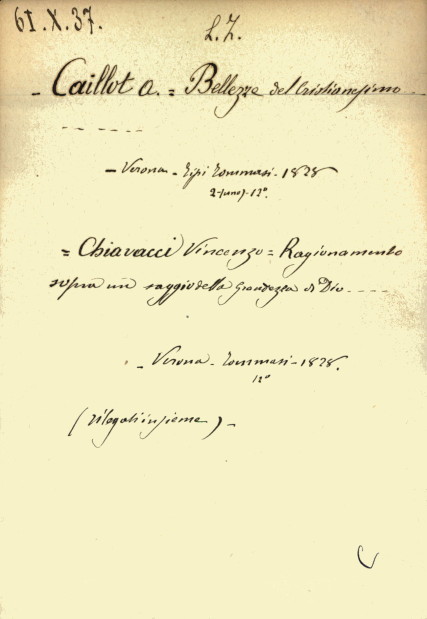 61.X.37.
L.Z.
- Caillot A. = Bellezze del Cristianesimo
- - - - - -
- Verona - Tipi Tommasi - 1828
12º.
= Chiavacci Vincenzo = Ragionamento
sopra un saggio della Grandezza di Dio - - - -
- Verona - Tommasi - 1828.
12º
(rilegati insieme) -